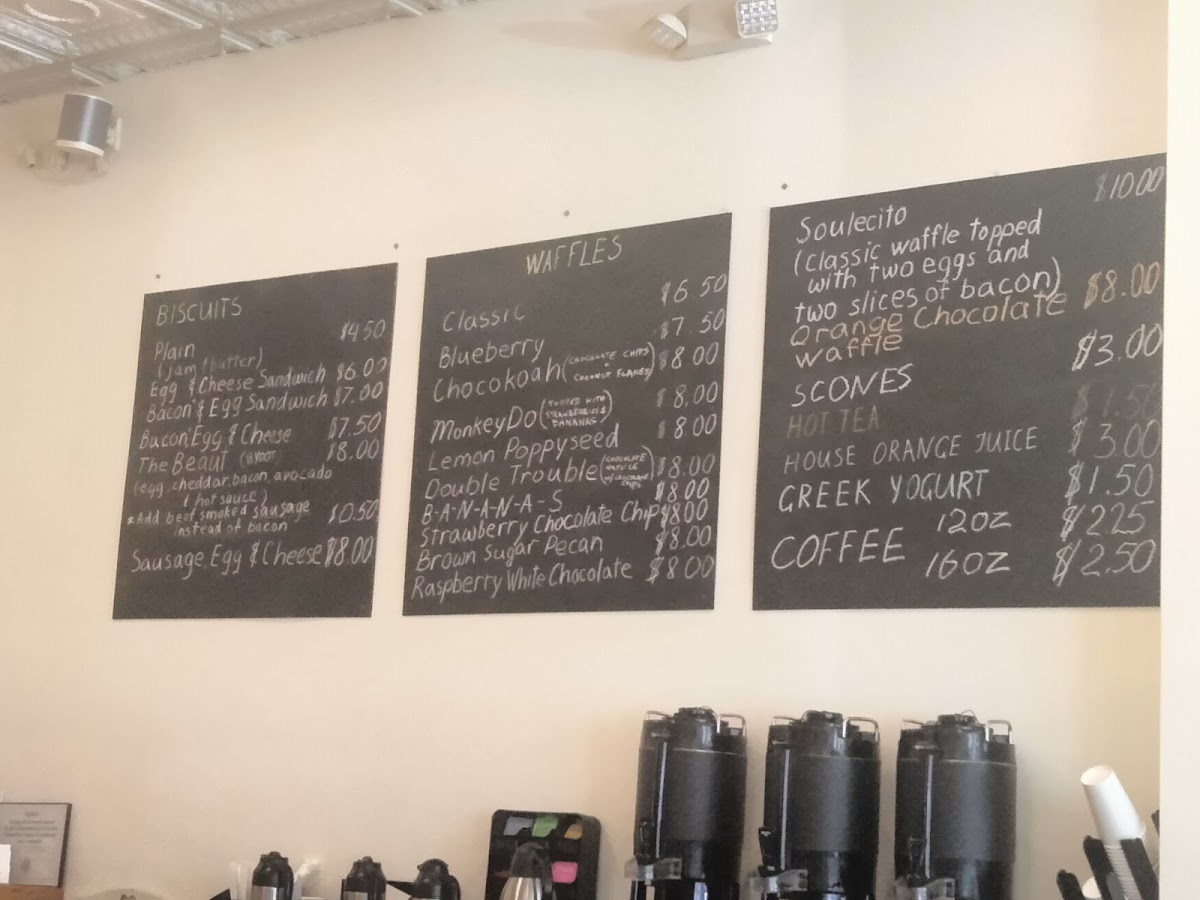 BISCUITS
Plain $4.50
(jam & butter)
Egg & Cheese Sandwich $6.00
Bacon & Egg Sandwich $7.00
Bacon Egg & Cheese $7.50
The Beaut $8.00
(egg, cheddar, bacon, avocado
& hot sauce)
*Add beef smoked sausage
instead of bacon $0.50
Sausage, Egg & Cheese $8.00
WAFFLES
Classic $6.50
Blueberry $7.50
Chocokoah (CHOCOLATE CHIPS + COCONUT FLAKES) $8.00
MonkeyDo (TOPPED WITH STRAWBERRIES & BANANAS) $8.00
Lemon Poppyseed $8.00
Double Trouble (CHOCOLATE WAFFLE W/ CHOCOLATE CHIPS) $8.00
B-A-N-A-N-A-S $8.00
Strawberry Chocolate Chip $8.00
Brown Sugar Pecan $8.00
Raspberry White Chocolate $8.00
Soulecito $10.00
(Classic waffle topped
with two eggs and
two slices of bacon)
Orange Chocolate $8.00
waffle
SCONES $3.00
HOT TEA $1.50
HOUSE ORANGE JUICE $3.00
GREEK YOGURT $1.50
COFFEE 12oz $2.25
16oz $2.50